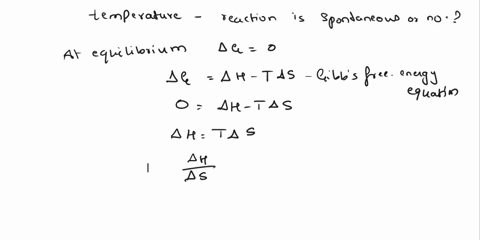 temperature - reaction is spontaneous or no.?
At equilibrium ΔG = 0
ΔG = ΔH - TΔS - Gibb's free energy
equation
0 = ΔH - TΔS
ΔH = TΔS
ΔH
ΔS